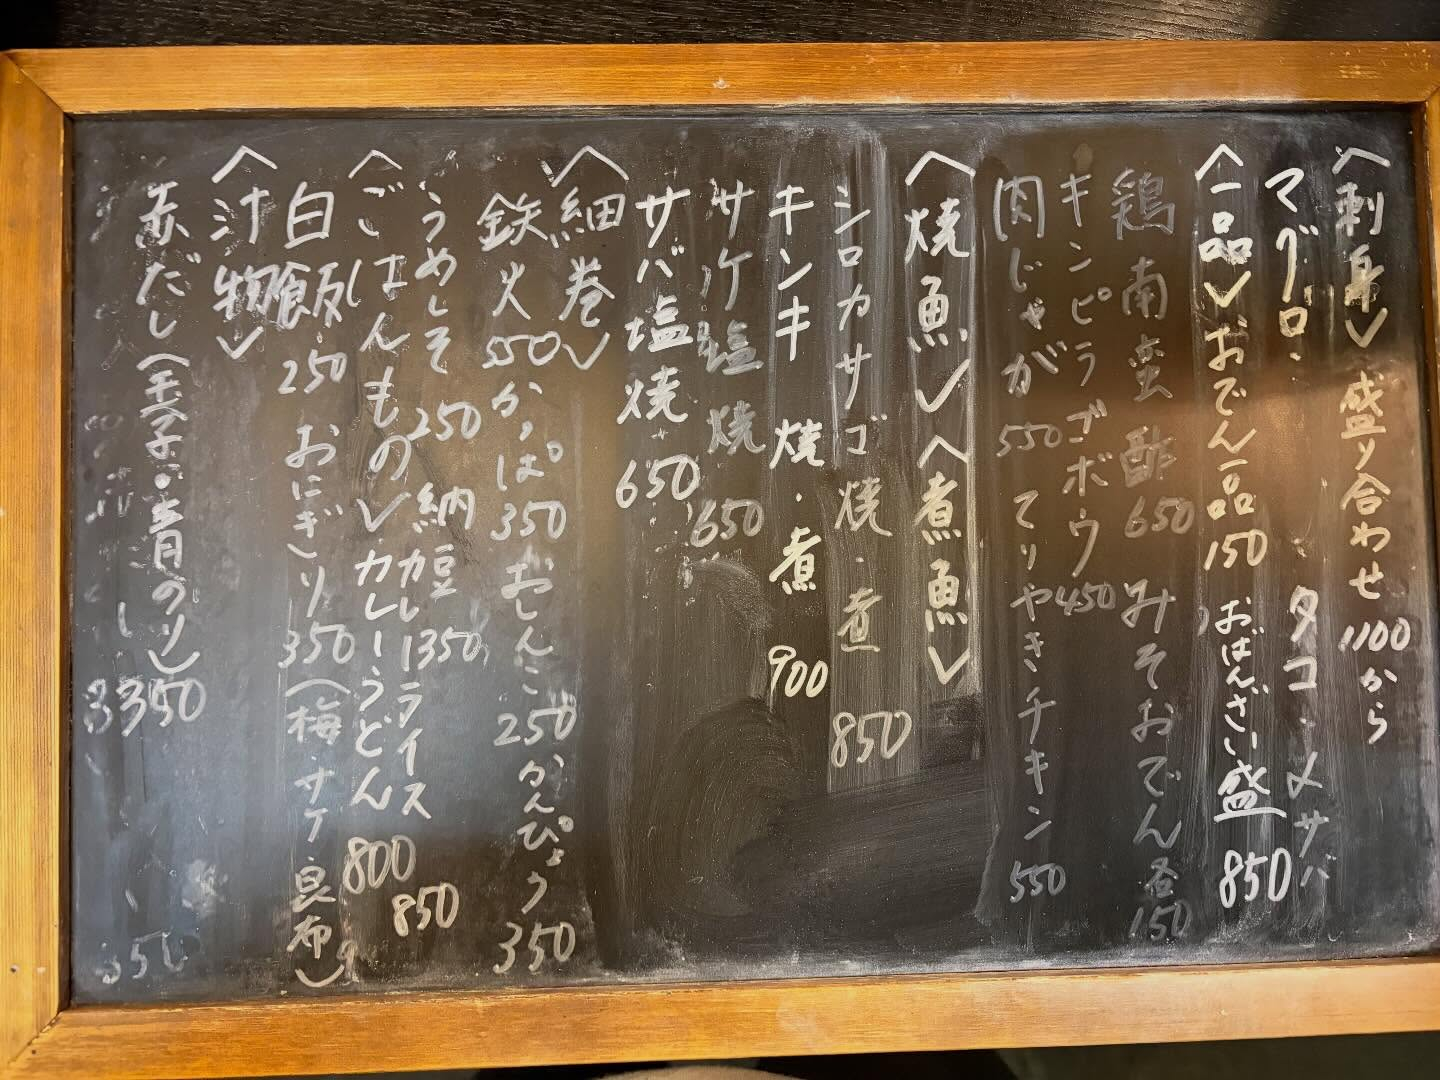 〈刺身〉盛り合わせ1100から
マグロ・タコ・〆サバ
〈一品〉おでん一品150 おばんざい盛850
鶏南蛮酢650 みそおでん各150
キンピラゴボウ450
肉じゃが550 てりやきチキン550
〈焼魚〉〈煮魚〉
シロカサゴ焼・煮 850
キンキ 焼・煮 900
サケ塩焼650
サバ塩焼650
〈細巻〉
鉄火550かっぱ350おしんこ250かんぴょう350
うめしそ250 納豆350
〈ごはんもの〉カレーうどん800
カレーライス850
白飯250 おにぎり350(梅・サケ・昆布)
〈汁物〉
赤だし(玉子・青のり)350
350